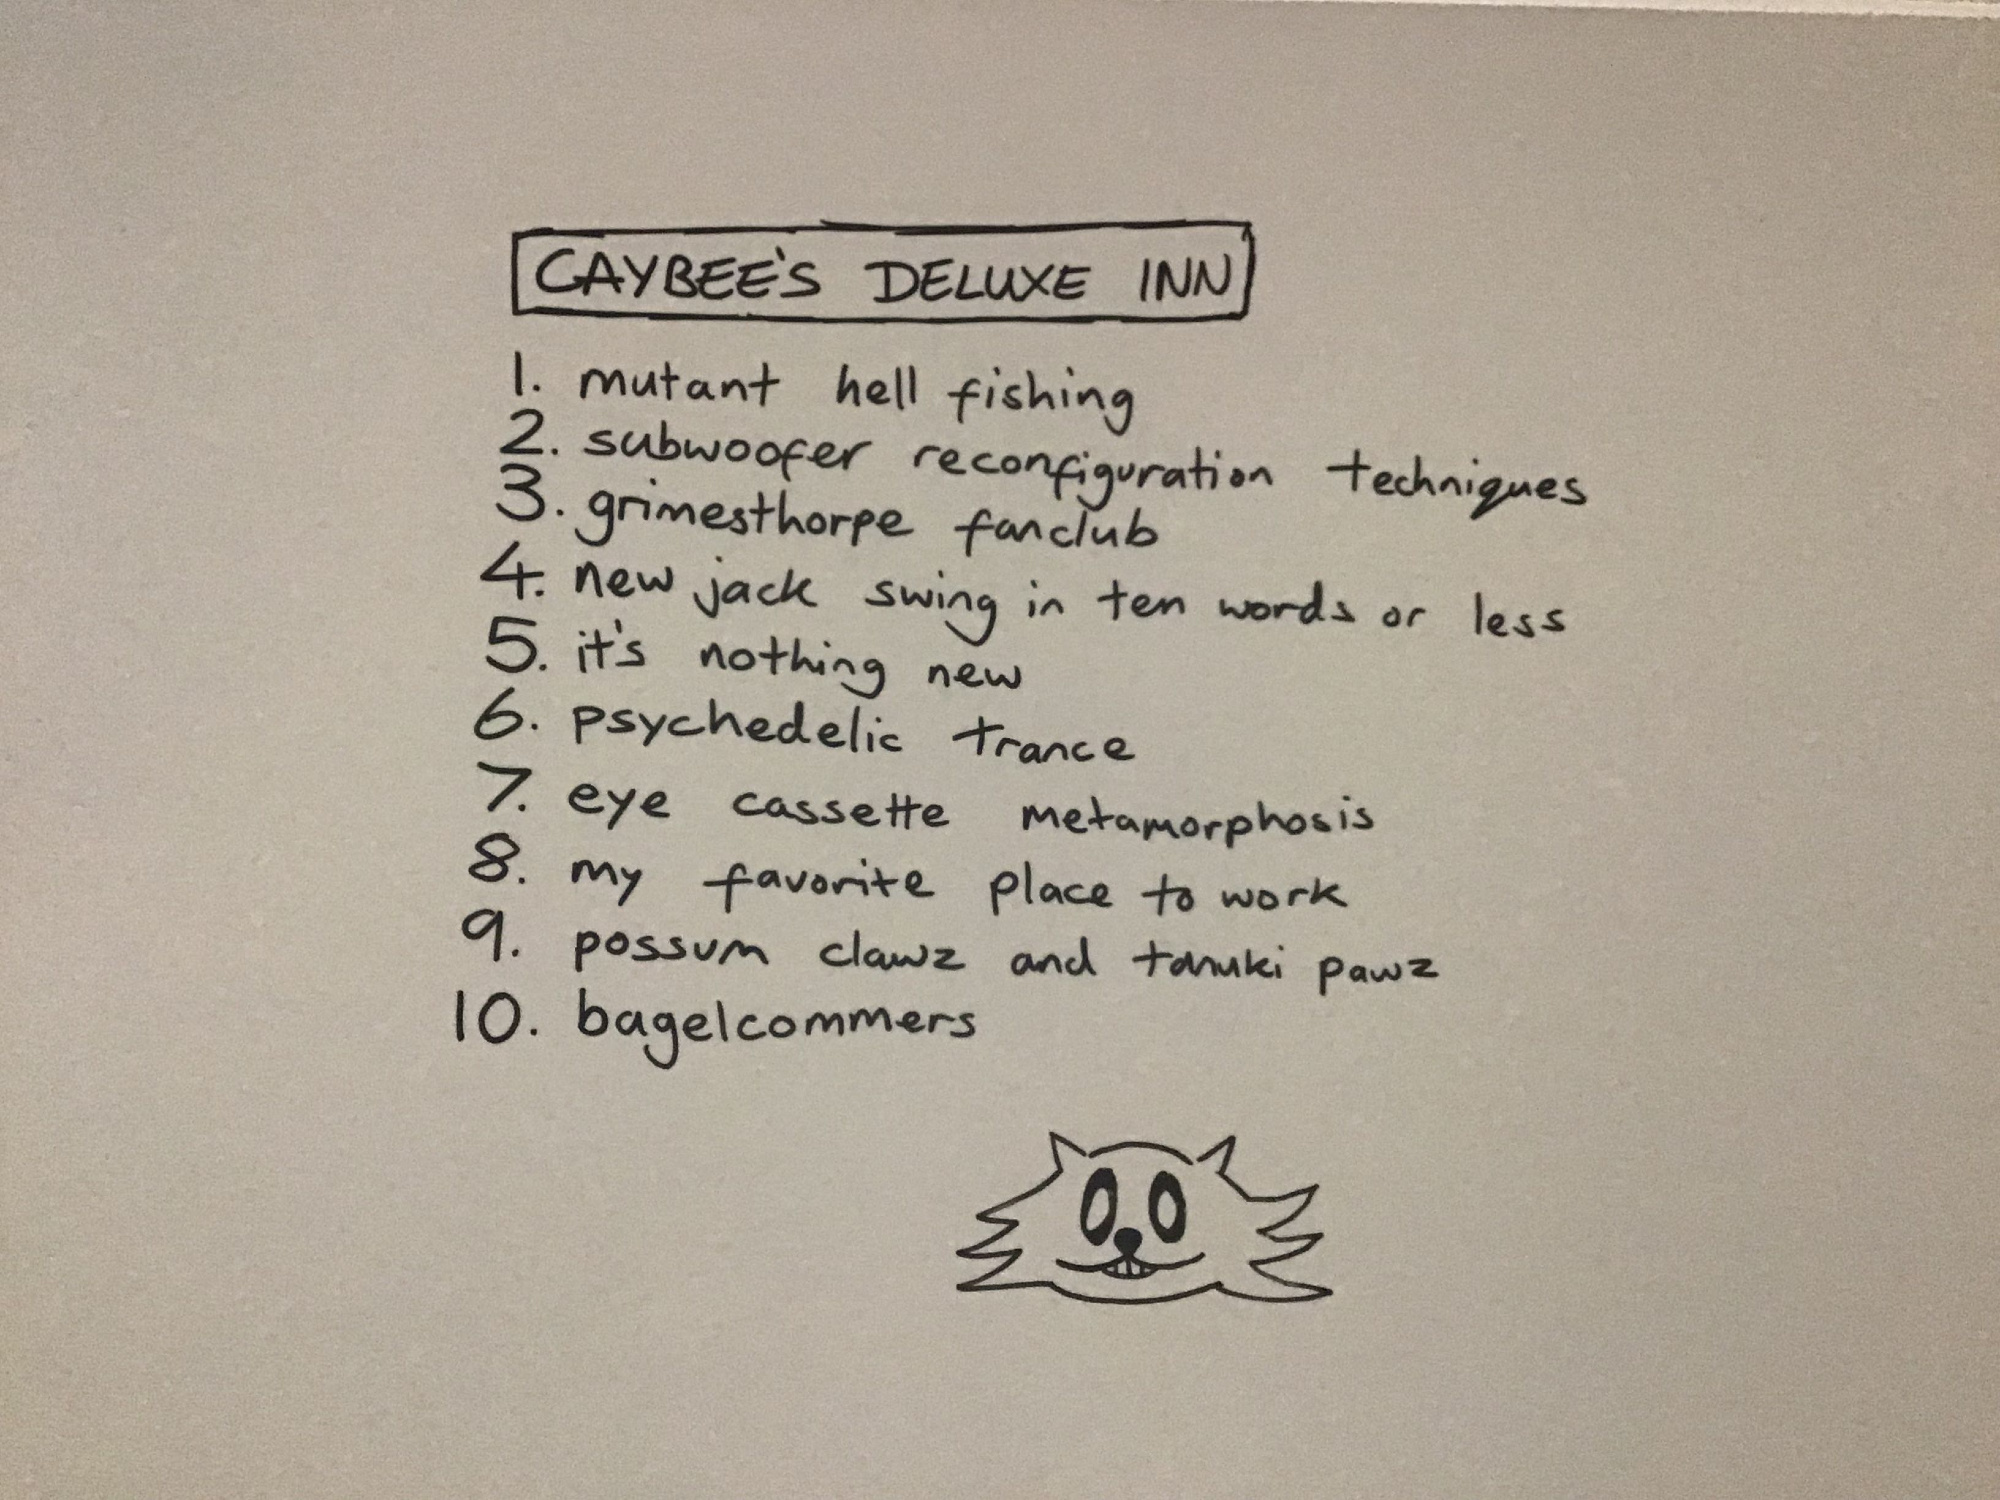 CAYBEE'S DELUXE INN
1. mutant hell fishing
2. subwoofer reconfiguration techniques
3. grimesthorpe fanclub
4. new jack swing in ten words or less
5. it's nothing new
6. psychedelic trance
7. eye cassette metamorphosis
8. my favorite place to work
9. possum clawz and tanuki pawz
10. bagelcommers